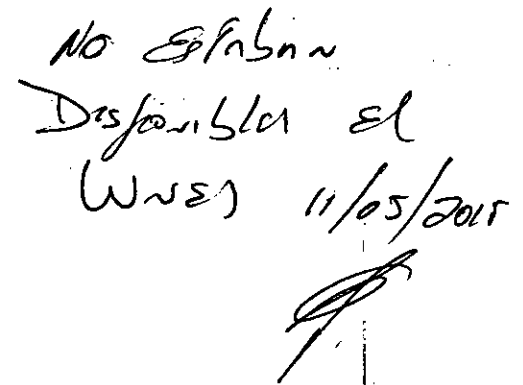 No Estaban
Disponibles el
Lunes 11/05/2015